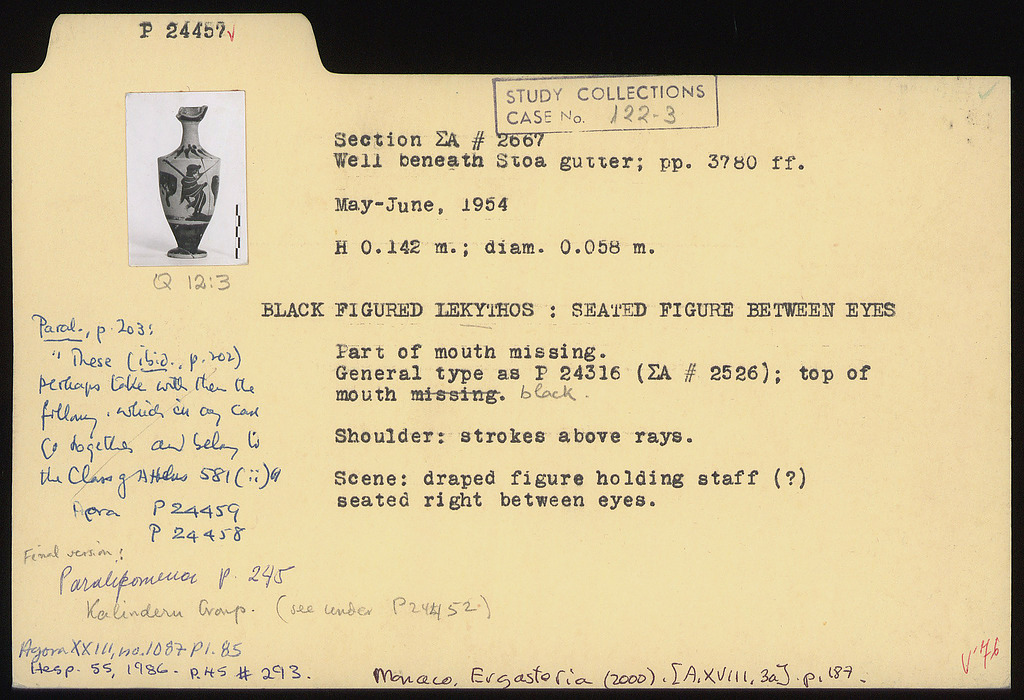 P 24457
STUDY COLLECTIONS
CASE No. 122-3
Section ΣA # 2667
Well beneath Stoa gutter; pp. 3780 ff.
May-June, 1954
H 0.142 m.; diam. 0.058 m.
Q 12:3
BLACK FIGURED LEKYTHOS : SEATED FIGURE BETWEEN EYES
Part of mouth missing.
General type as P 24316 (ΣA # 2526); top of
mouth missing. black.
Shoulder: strokes above rays.
Scene: draped figure holding staff (?)
seated right between eyes.
Paral., p. 203:
"These (ibid., p. 202)
perhaps take with them the
which in any case
go together and belong to
the Class of Athens 581 (ii)"
Agora P 24459
P 24458
Final version:
Paralipomena p. 245
Kalinderu Group. (see under P 24452)
Agora XXIII, no. 1087 Pl. 85
Hesp. 55, 1986. p. 45 # 293.
Monaco, Ergasteria (2000). [A.XVIII, 3a]. p. 187.
V '76